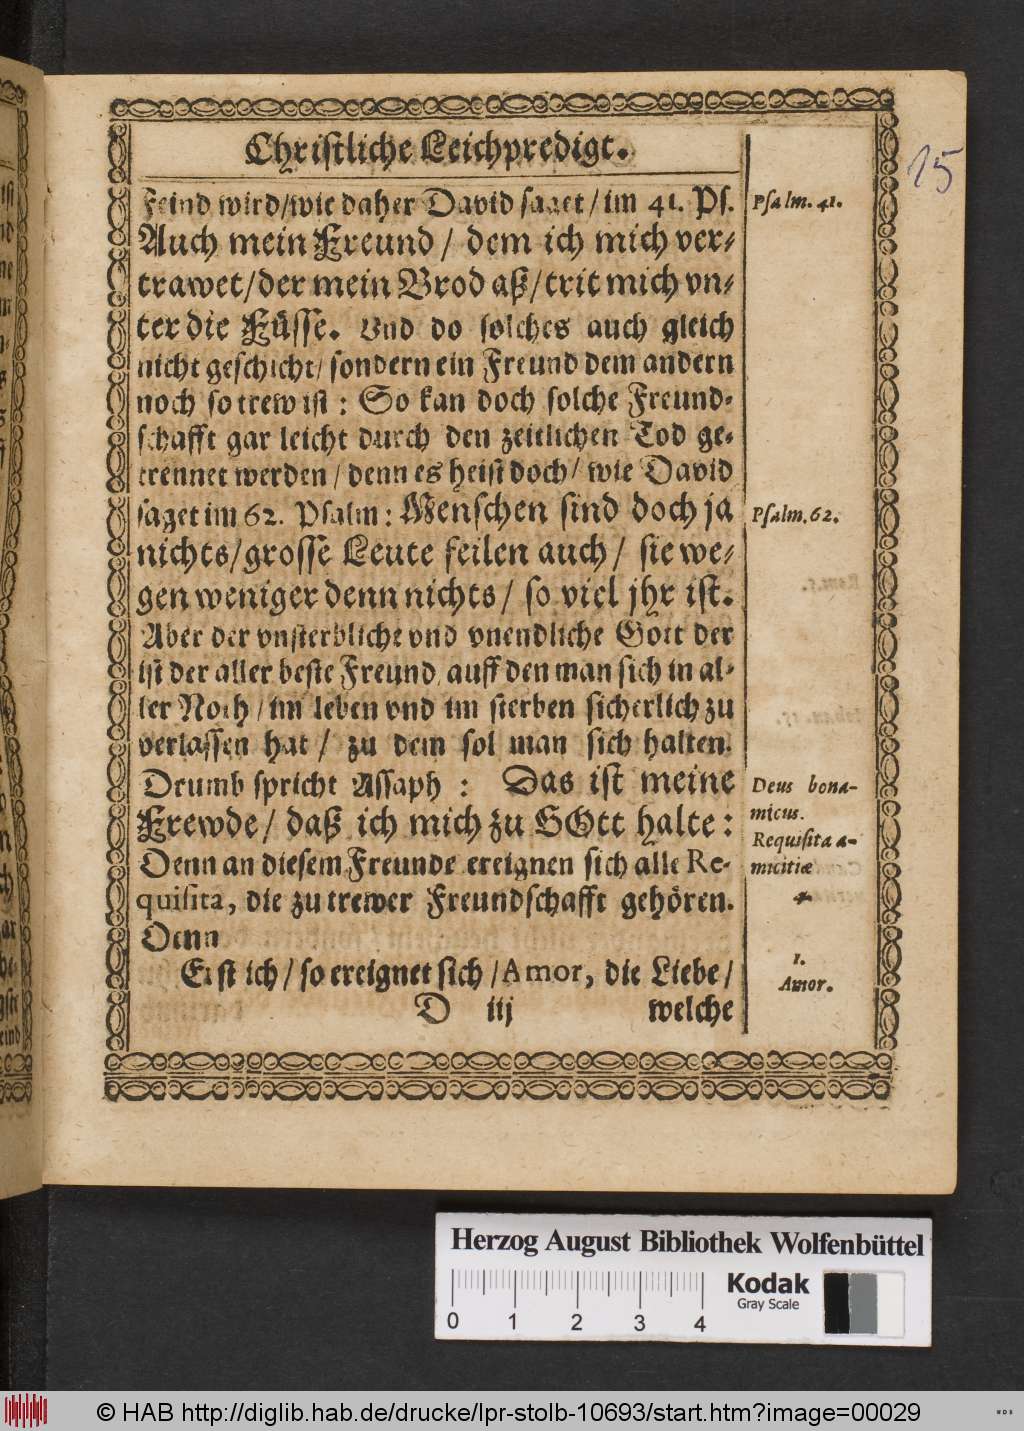 Christliche Leichpredigt.
15
Feind wird/wie daher David saget/im 41. Ps.
Psalm. 41.
Auch mein Freund/ dem ich mich ver-
trawet/der mein Brod aß/trit mich vn-
ter die Füsse. Vnd do solches auch gleich
nicht geschicht/ sondern ein Freund dem andern
noch so trew ist : So kan doch solche Freund-
schafft gar leicht durch den zeitlichen Tod ge-
trennet werden/ denn es heist doch/ wie David
saget im 62. Psalm: Menschen sind doch ja
Psalm. 62.
nichts/grosse Leute feilen auch/ sie we-
gen weniger denn nichts/ so viel jhr ist.
Aber der vnsterbliche vnd vnendliche Gott der
ist der aller beste Freund auff den man sich in al-
ler Noth/ im leben vnd im sterben sicherlich zu
verlassen hat/ zu dem sol man sich halten.
Drumb spricht Assaph : Das ist meine
Deus bona-
Frewde/ daß ich mich zu GOtt halte:
micus.
Requisita a-
Denn an diesem Freunde ereignen sich alle Re-
micitiæ
quisita, die zu trewer Freundschafft gehören.
Denn
Erstich/ so ereignet sich/ Amor, die Liebe/
1.
Amor.
D iij welche
Herzog August Bibliothek Wolfenbüttel
0 1 2 3 4
Kodak
Gray Scale
© HAB http://diglib.hab.de/drucke/lpr-stolb-10693/start.htm?image=00029